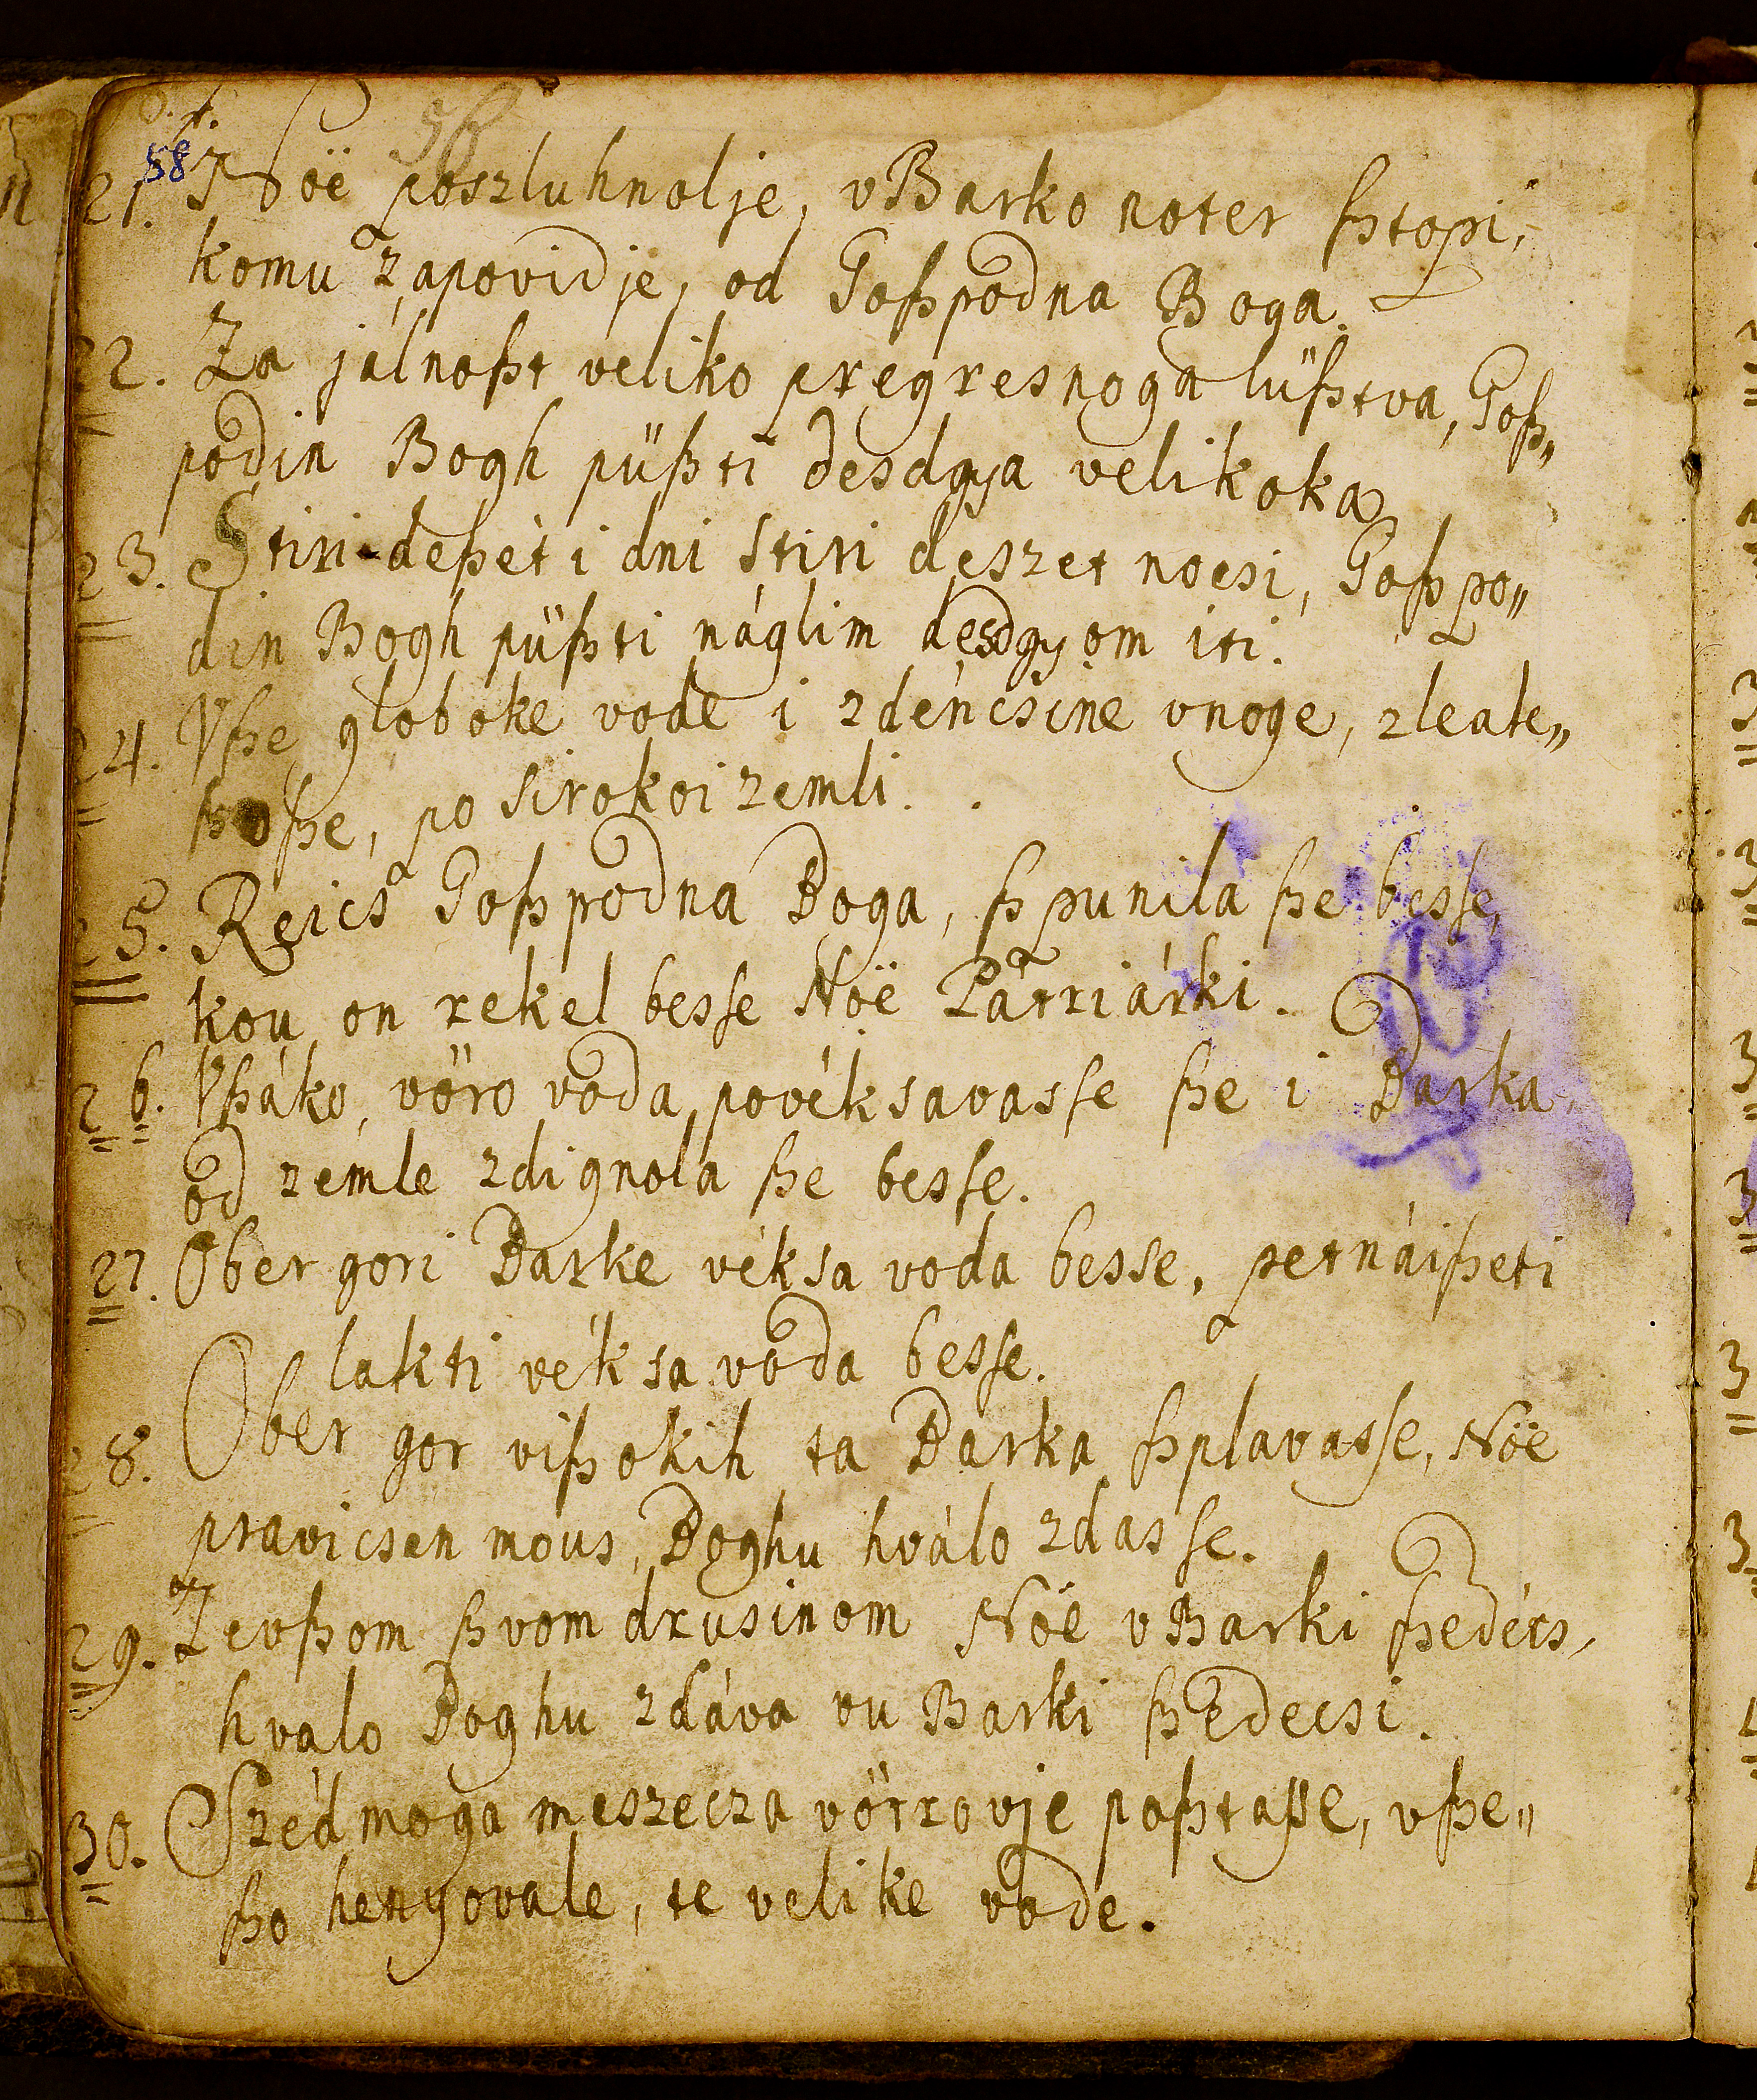 58
21. Noë poszluhnolje, vBarko noter ſztopi,
komu zapovidje, od Goſzpodna Boga.
22. Za jálnoſzt veliko pregresnoga lüſztva, Goſz„
podin Bogh püſzti desdgya velikoka
23. Stiri-deſzét i dni stiri deszet nocsi, Goſzpo„
din Bogh püſzti náglim desdgyom iti.
24. Vſze globoke vode i zdéncsine vnoge, zleate„
ſzoſze, po sirokoi zemli.
25. Reics Goſzpodna Boga, ſzpunila ſze besſe,
kou on rekel besſe Noë Patriárki.
26. Vſzáko, vöro voda povéksavasſe ſze i Barka
od zemle zdignola ſze besſe.
27. Ober gori Barke véksa voda besse, petnáiſzeti
lakti véksa voda besſe.
28. Ober gor viſzokih ta Barka ſzplavasſe, Nöe
pravicsen mous, Boghu hválo zdasſe.
29. Zevſzom ſzvom drusinom Nöe vBarki ſzedécs,
hvalo Boghu zdáva vu Barki ſzedecsi.
30. Szédmoga meszecza vötrovje poſztaſſe, vſze„
ſzo henyovale, te velike vode.